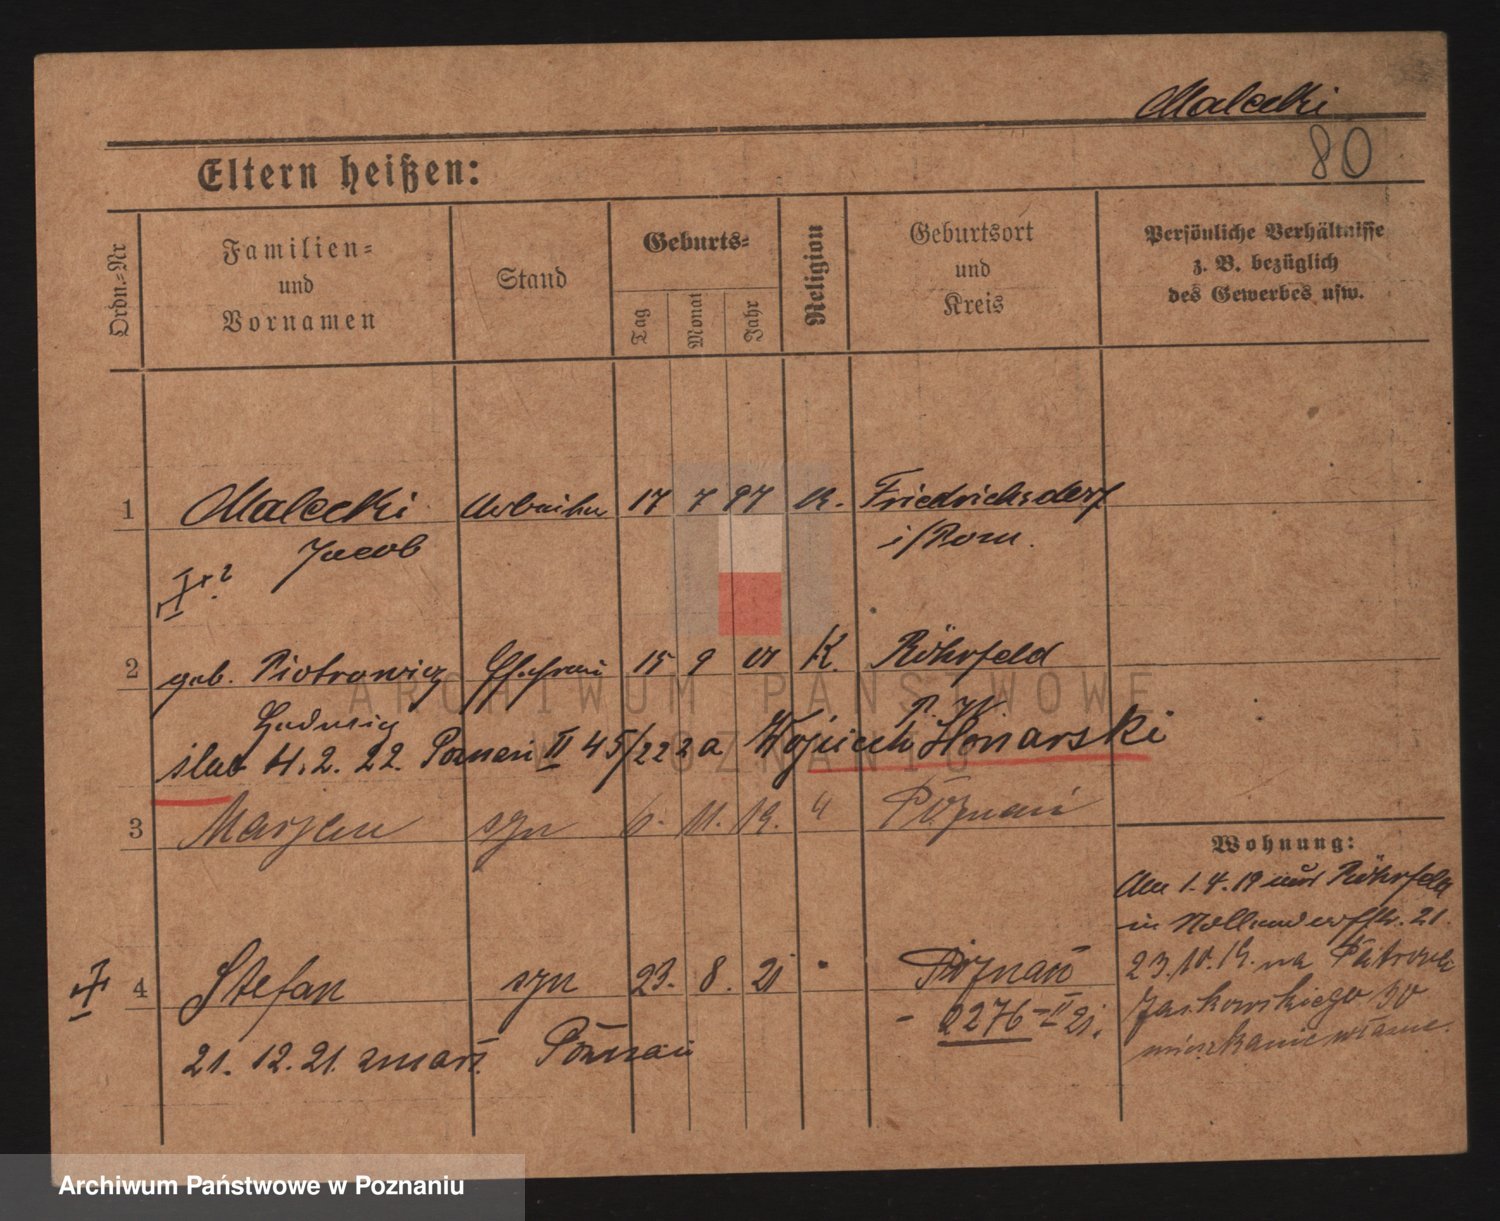 Malecki
80
Eltern heißen:
Ordn.-Nr
Familien-
und
Vornamen
Stand
Geburts-
Tag
Monat
Jahr
Religion
Geburtsort
und
Kreis
Persönliche Verhältnisse
z. B. bezüglich
des Gewerbes usw.
1 Malecki Arbeiter 17 7 97 Friedrichsdorf
Jacob
2 geb. Piotrowicz Ehefrau 15 9 01 K. Röhrfeld
Hedwig
ślub 4.2.22. Poznań II 45/22 Wojciech
3 Marjan syn 11. 19. " Poznań
Wohnung:
Am 1.4.19 aus Röhrfeld
in Nollendorfstr. 21.
23.10.19. na
Jaskowskiego
mieszkanie własne.
4 Stefan syn 23. 8. 21 " Poznań
- 2276-II 21.
21.12.21. zmarł. Poznań
ARCHIWUM PAŃSTWOWE
W POZNANIU
Archiwum Państwowe w Poznaniu